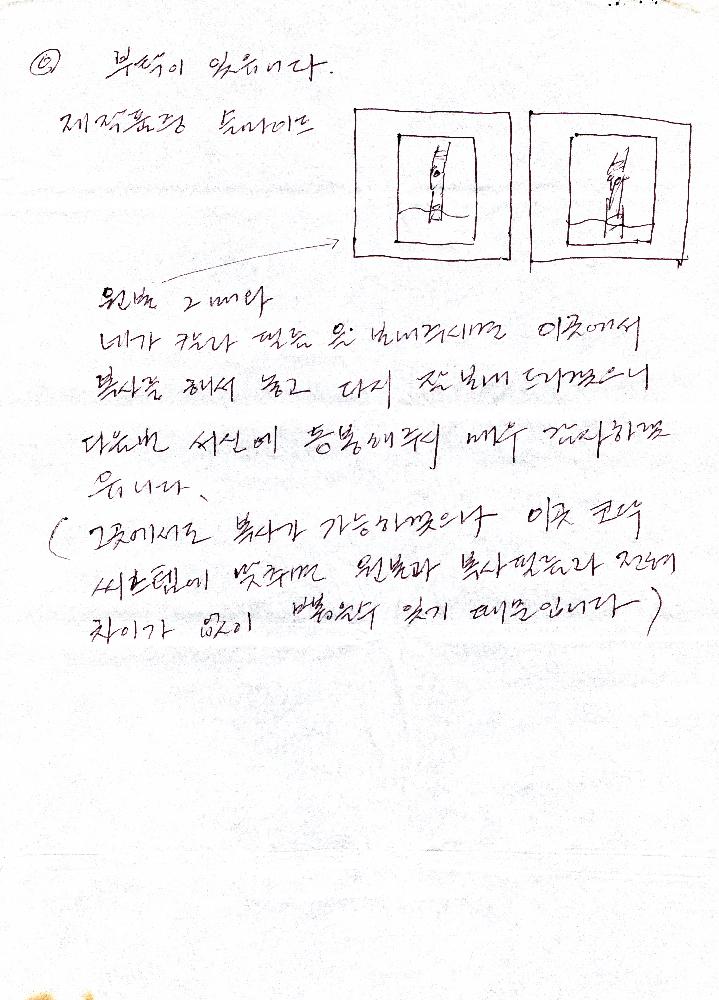 ⑥ 부탁이 있읍니다.
제작품중 슬라이드
원본 2매와
네가 칼라 필름을 보내주시면 이곳에서
복사를 해서 놓고 다시 잘 보내 드리겠으니
다음번 서신에 동봉해주시 매우 감사하겠
읍니다.
(그곳에서도 복사가 가능하겠으나 이곳 코닥
씨스템에 맞추면 원본과 복사필름과 전혀
차이가 없이 뽑을수 있기 때문입니다)